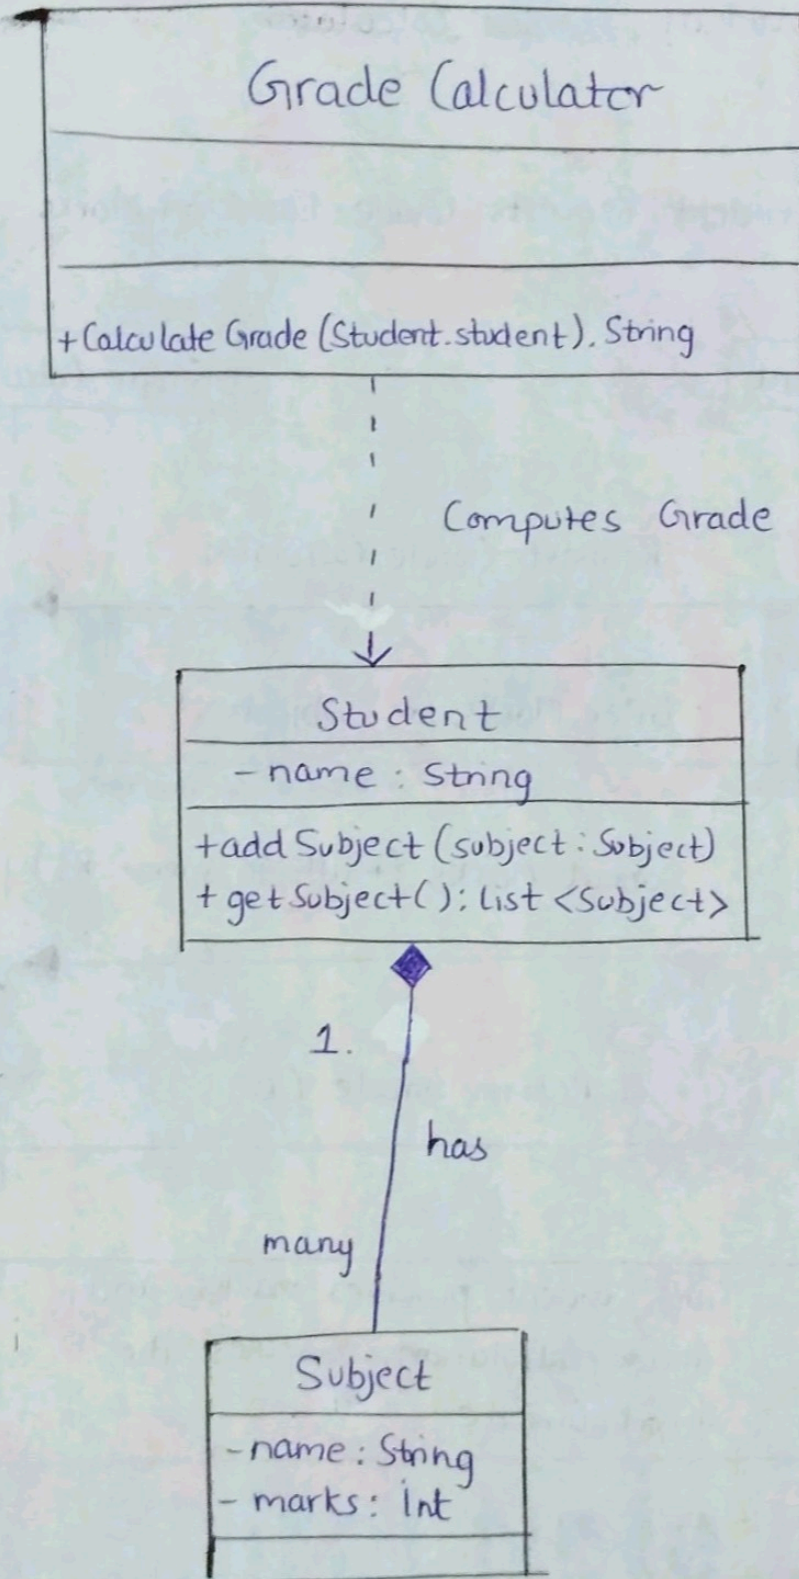 Grade Calculator
+Calculate Grade (Student.student). String
Computes Grade
Student
- name : String
+add Subject (subject : Subject)
+ get Subject() : list <Subject>
1.
has
many
Subject
- name : String
- marks : int